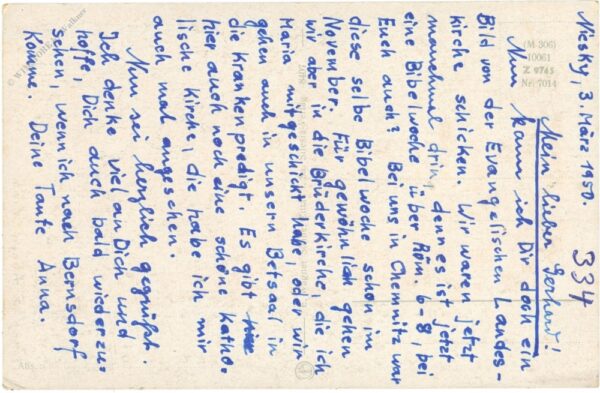 Niesky, 3. März 1950.
334
Mein lieber Gerhard!
Nun kann ich Dir doch ein
Bild von der Evangelischen Landes-
kirche schicken. Wir waren jetzt
manchmal drin, denn es ist jetzt
eine Bibelwoche über Röm. 6-8, bei
Euch auch? Bei uns in Chemnitz war
diese selbe Bibelwoche schon im
November. Für gewöhnlich gehen
wir aber in die Brüderkirche, die ich
Maria mitgeschickt habe, oder wir
gehen auch in unsern Betsaal in
die Krankenpredigt. Es gibt
hier auch noch eine schöne katho-
lische Kirche, die habe ich mir
auch mal angesehen.
Nun sei herzlich gegrüßt.
Ich denke viel an Dich und
hoffe, Dich auch bald wiederzu-
sehen, wenn ich nach Bernsdorf
komme. Deine Tante Anna.
(M 306)
10061
Z 9745
Nr. 7014